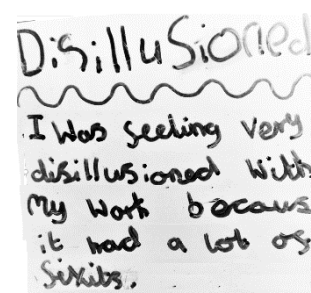 Disillusioned
I was feeling very
disillusioned with
my work becaus
it had a lot of